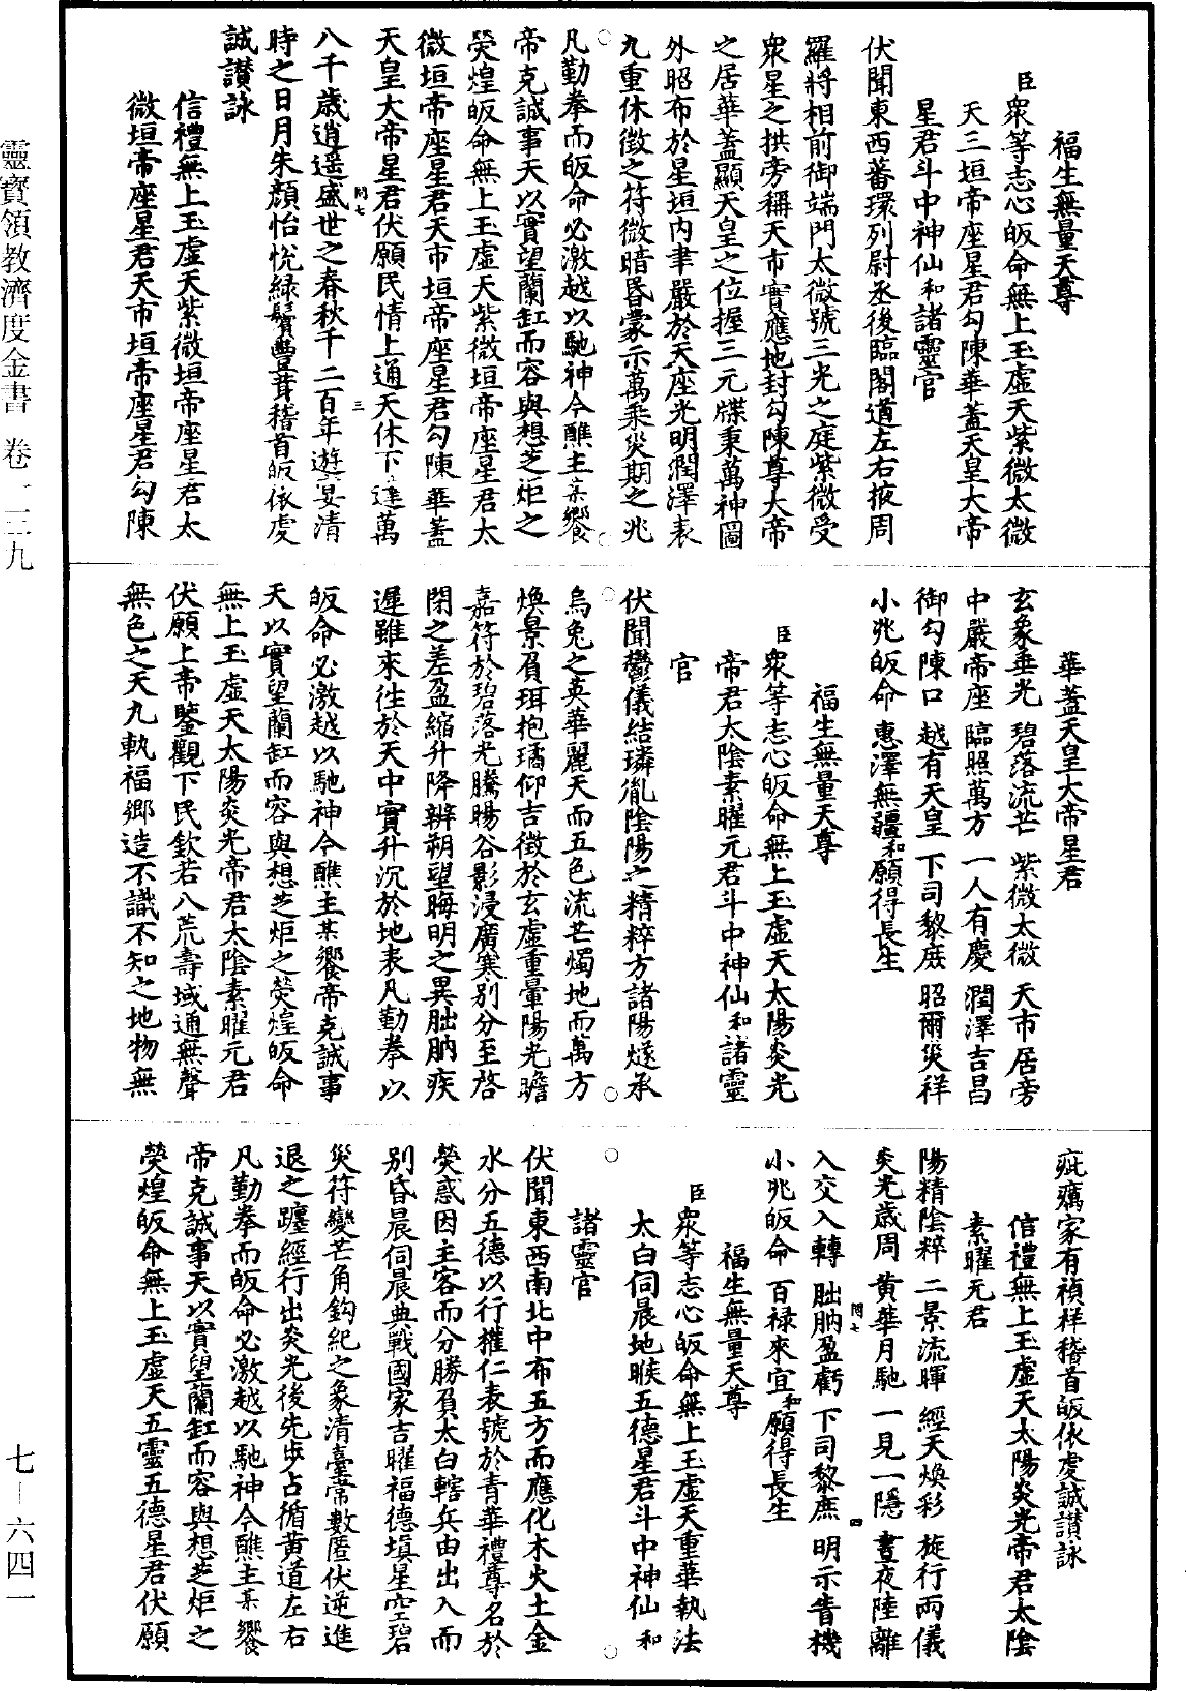 福生無量天尊
臣眾等志心皈命無上玉虛天紫微太微
天三垣帝座星君勾陳華蓋天皇大帝
星君斗中神仙和諸靈官
伏聞東西蕃環列尉丞後臨閣道左右掖周
羅將相前御端門太微號三光之庭紫微受
眾星之拱旁稱天市實應地封勾陳尊大帝
之居華蓋顯天皇之位握三元牒秉萬神圖
外昭布於星垣內聿嚴於天座光明潤澤表
九重休徵之符微暗昏蒙示萬乘災期之兆
凡勤拳而皈命必激越以馳神今醮主某饗
帝克誠事天以實望蘭缸而容與想芝炬之
熒煌皈命無上玉虛天紫微垣帝座星君太
微垣帝座星君天市垣帝座星君勾陳華蓋
天皇大帝星君伏願民情上通天休下逮萬
八千歲逍遥盛世之春秋千二百年遊宴清
時之日月朱顏怡悅綠鬢豐茸稽首皈依虔
誠讃詠
信禮無上玉虛天紫微垣帝座星君太
微垣帝座星君天市垣帝座星君勾陳
華蓋天皇大帝星君
玄象垂光 碧落流芒 紫微太微 天市居旁
中嚴帝座 臨照萬方 一人有慶 潤澤吉昌
御勾陳口 越有天皇 下司黎庶 昭爾災祥
小兆皈命 惠澤無疆和願得長生
福生無量天尊
臣眾等志心皈命無上玉虛天太陽炎光
帝君太陰素曜元君斗中神仙和諸靈
官
伏聞鬱儀結璘胤陰陽之精粹方諸陽燧承
烏兔之英華麗天而五色流芒燭地而萬方
煥景負珥抱璚仰吉徵於玄虛重暈陽光瞻
嘉符於碧落光騰暘谷影浸廣寒別分至啓
閉之差盈縮升降辨朔望晦明之異朏朒疾
遲雖來往於天中實升沉於地表凡勤拳以
皈命必激越以馳神今醮主某饗帝克誠事
天以實望蘭缸而容與想芝炬之熒煌皈命
無上玉虛天太陽炎光帝君太陰素曜元君
伏願上帝鑒觀下民欽若八荒壽域通無聲
無色之天九軌福鄉造不識不知之地物無
疵癘家有禎祥稽首皈依虔誠讃詠
信禮無上玉虛天太陽炎光帝君太陰
素曜元君
陽精陰粹 二景流暉 經天煥彩 旋行兩儀
炎光歲周 黄華月馳 一見一隱 晝夜陸離
入交入轉 朏朒盈虧 下司黎庶 明示眚機
小兆皈命 百禄來宜和願得長生
福生無量天尊
臣眾等志心皈命無上玉虛天重華執法
太白伺晨地睺五德星君斗中神仙和
諸靈官
伏聞東西南北中布五方而應化木火土金
水分五德以行權仁表號於青華禮尊名於
熒惑因主客而分勝負太白轄兵由出入而
別昏晨伺晨典戰國家吉曜福德填星空碧
災符變芒角鈎紀之象清臺常數匿伏逆進
退之躔經行出炎光後先步占循黄道左右
凡勤拳而皈命必激越以馳神今醮主某饗
帝克誠事天以實望蘭缸而容與想芝炬之
熒煌皈命無上玉虛天五靈五德星君伏願
靈寳領教濟度金書 卷一二九
七—六四一